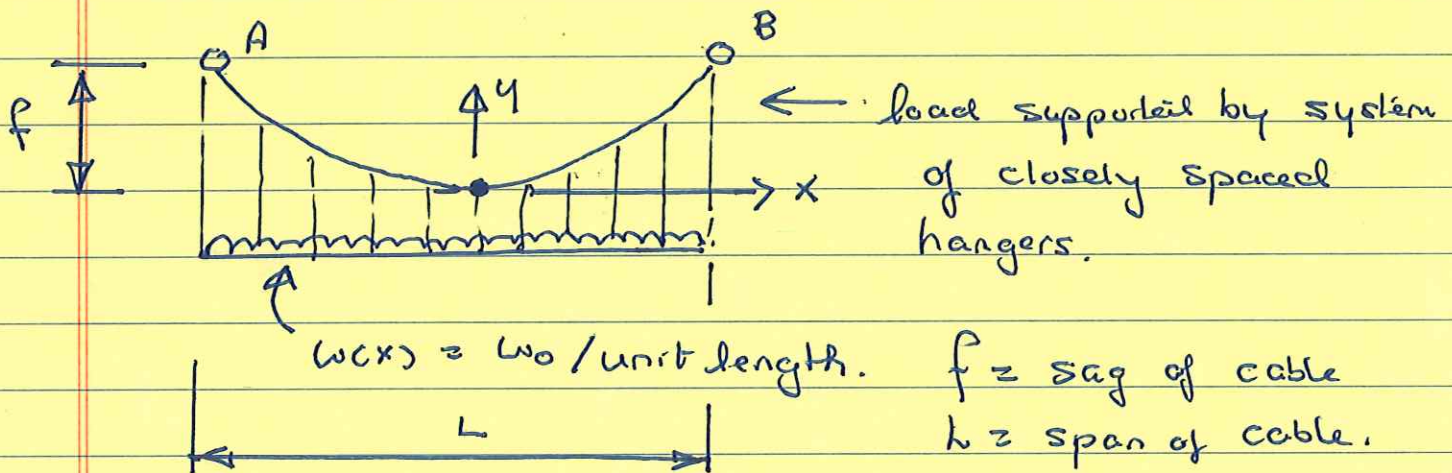 A
B
f
y
x
← load supported by system
of closely spaced
hangers.
w(x) = wo/unit length.
f = sag of cable
L
L = span of cable.